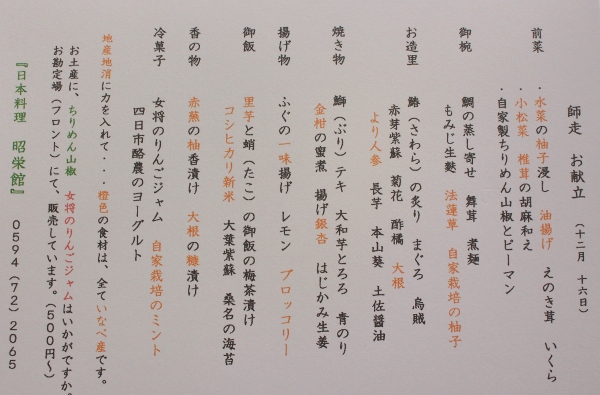 師走　お献立　（十二月　十六日）
前菜　・水菜の柚子浸し　油揚げ　えのき茸　いくら
・小松菜　椎茸の胡麻和え
・自家製ちりめん山椒とピーマン
御椀　鯛の蒸し寄せ　舞茸　煮麺
もみじ生麩　法蓮草　自家栽培の柚子
お造里　鰆（さわら）の炙り　まぐろ　烏賊
赤芽紫蘇　菊花　酢橘　大根
より人参　長芋　本山葵　土佐醤油
焼き物　鰤（ぶり）テキ　大和芋とろろ　青のり
金柑の蜜煮　揚げ銀杏　はじかみ生姜
揚げ物　ふぐの一味揚げ　レモン　ブロッコリー
御飯　里芋と蛸（たこ）の御飯の梅茶漬け
コシヒカリ新米　大葉紫蘇　桑名の海苔
香の物　赤蕪の柚香漬け　大根の糠漬け
冷菓子　女将のりんごジャム　自家栽培のミント
四日市酪農のヨーグルト
地産地消に力を入れて・・・橙色の食材は、全ていなべ産です。
お土産に、ちりめん山椒　女将のりんごジャムはいかがですか。
お勘定場（フロント）にて、販売しています。（５００円〜）
『日本料理　昭栄館』　０５９４（７２）２０６５